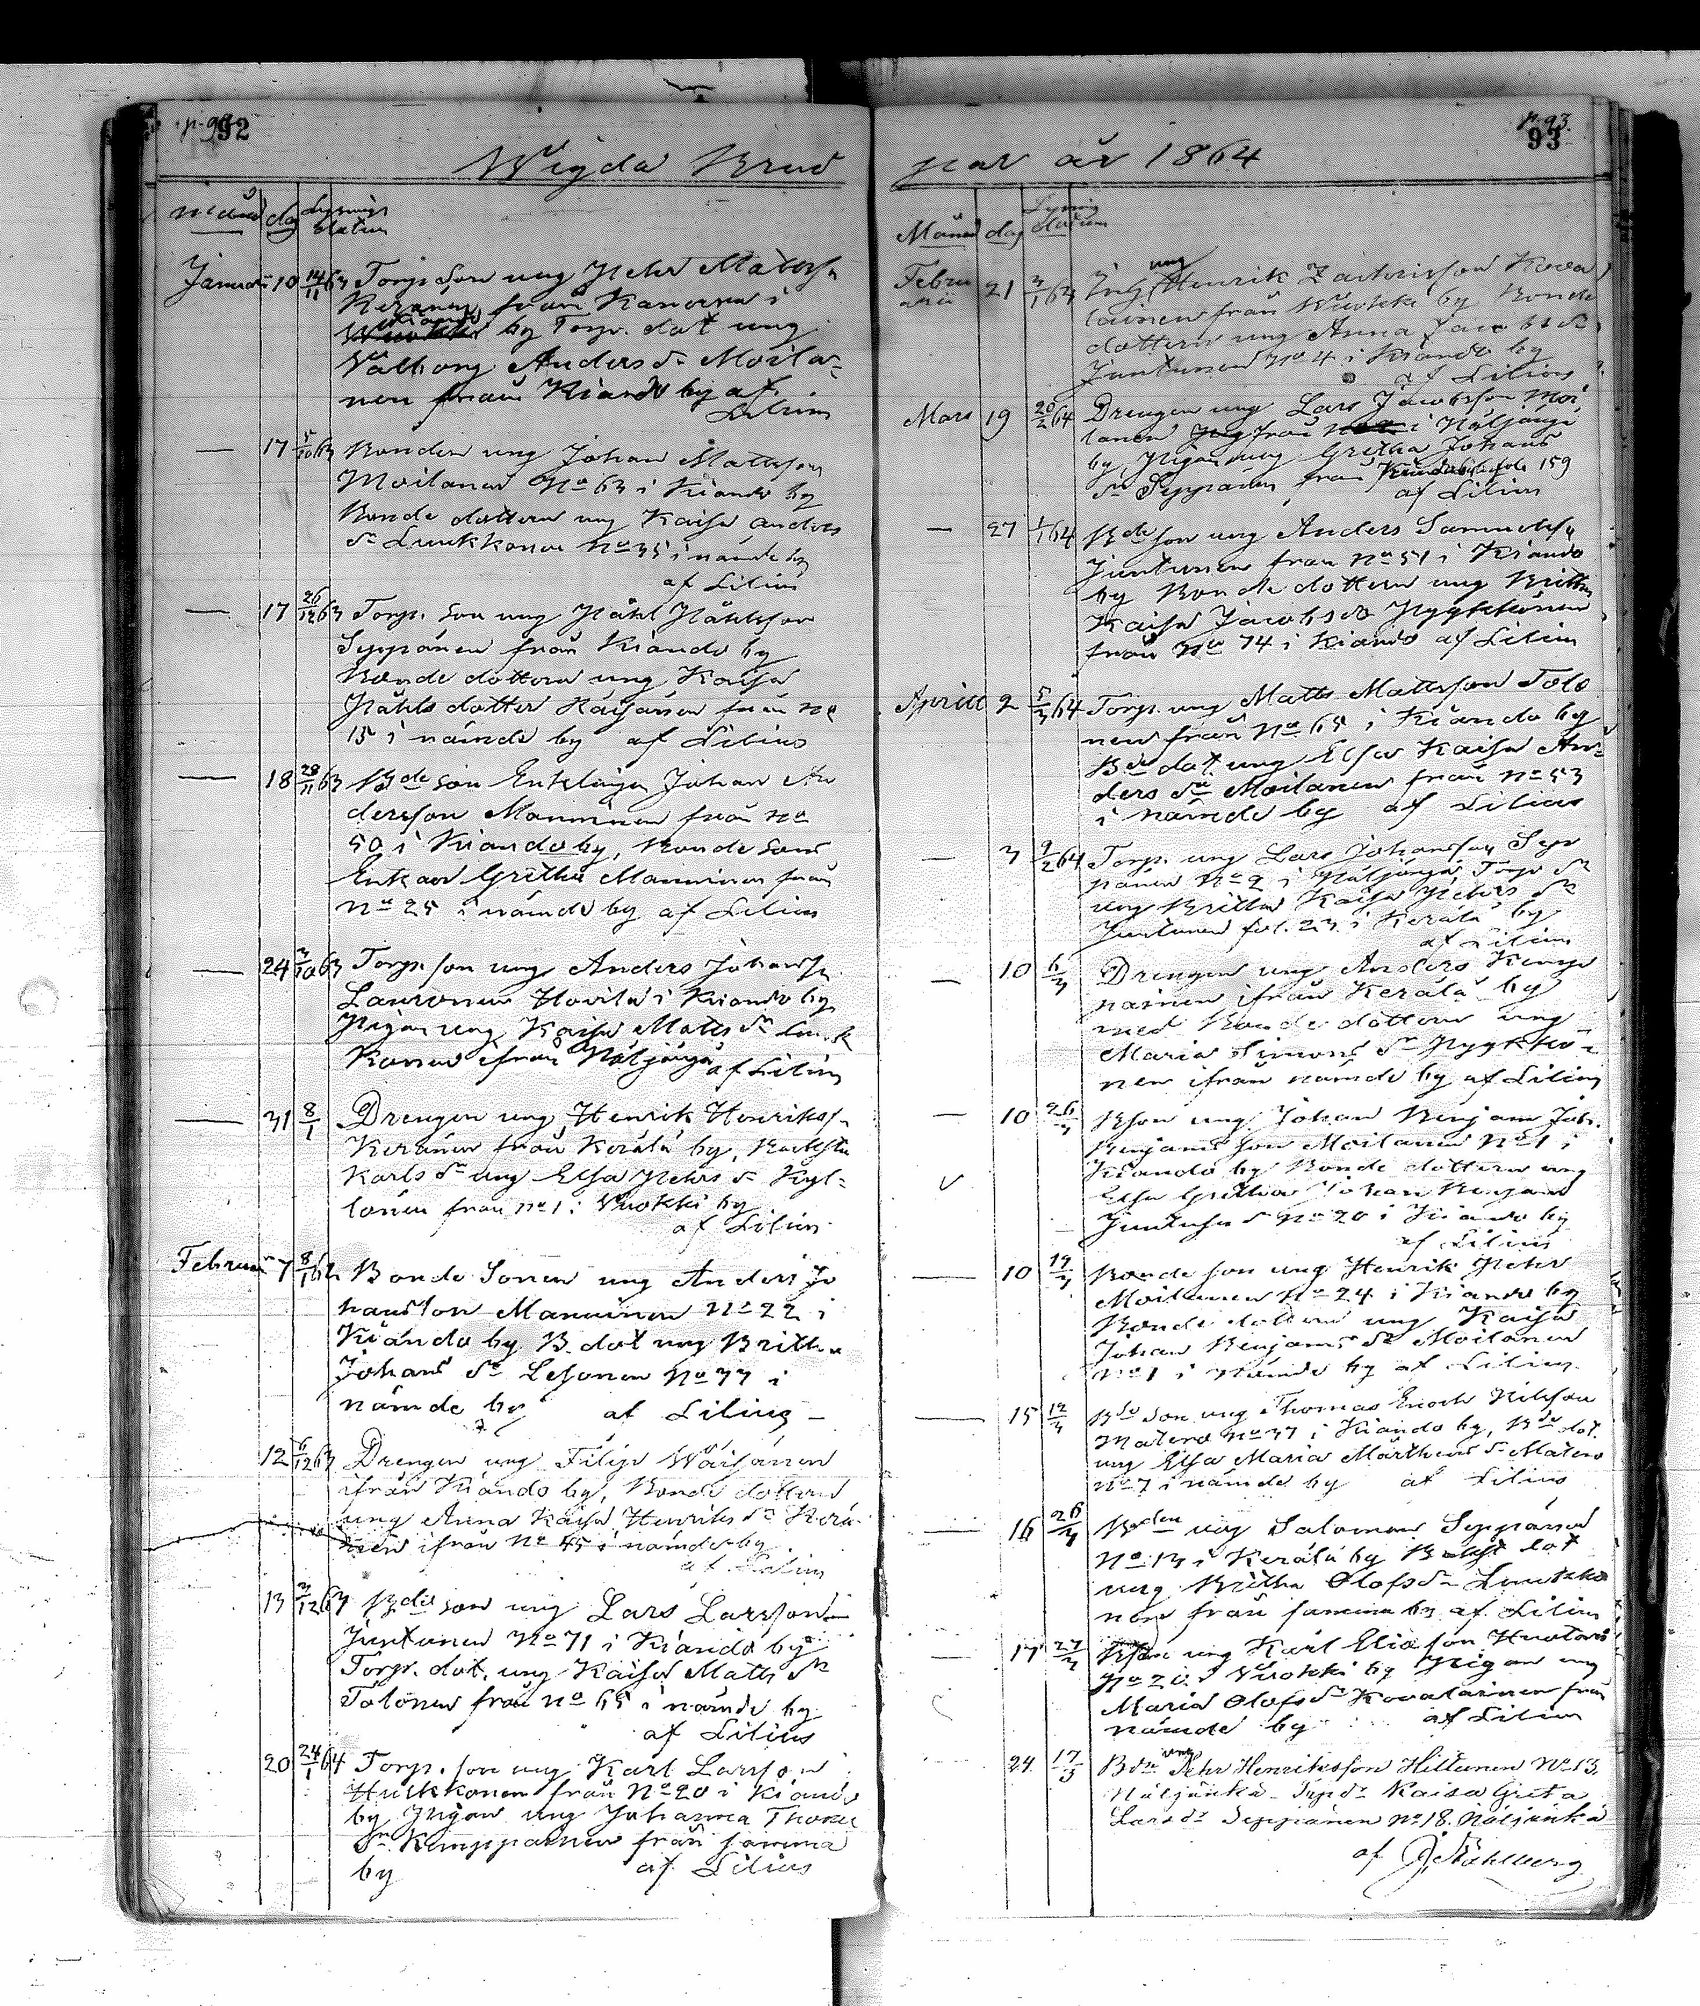 92
Wigda Brud
månad dag Lysnings
datum
Januari 10 14/11 63 Torp. son ung Pehr Mattss:n
Keränen från
Kiando by Torp. dot ung
Valborg Anders d:r Moila-
nen från Kiando by af
Lilius
— 17 5/10 63 Bonden ung Johan Mattsson
Moilanen N:o 63 i Kiando by
Bonde dottern ung Kaisa Anders
d:r Luukkonen N:o 35 i nämde by
af Lilius
— 17 26/12 63 Torp. son ung Påhl Påhlsson
Seppänen från Kiando by
Bonde dottern ung Kaisa
Påhls dotter Häijänen från N:o
15 i nämde by af Lilius
— 18 28/11 63 B:de son Enklingen Johan An
dersson Manninen från N:o
50 i Kiando by, Bonde sons
Enkan Gretha Manninen från
N:o 25 i nämde by af Lilius
— 24 3/10 63 Torp. son ung Anders Johanss:n
Lauronen Hovila i Kiando by
Pigan ung Kaisa Matts d:r Luuk
konen ifrån Näljängä af Lilius
— 31 8/1 Drengen ung Henrik Henrikss:n
Keränen från Kerälä by,
Karls d:r ung Elsa Pehrs d:r Kyl-
lönen från N:o 1 i Vuokki by
af Lilius
Februari 7 8/1 Bonde Sonen ung Anders Jo
hansson Manninen N:o 22 i
Kiando by B. dot ung Britha
Johans d:r Lesonen N:o 37 i
nämde by af Lilius
12 6/12 63 Drengen ung Filip Wäisänen
ifrån Kiando by, Bonde dottern
ung Anna Kaisa Henriks d:r Kerä-
nen ifrån N:o 45 i nämde by
af Lilius
13 3/12 63 B:de son ung Lars Larsson
Juntunen N:o 71 i Kiando by
Torp. dot. ung Kaisa Matts d:r
Tolonen från N:o 65 i nämde by
af Lilius
20 24/1 64 Torp. son ung Karl Larsson
Hukkonen från N:o 20 i Kiando
by Pigan ung Johanna Thomas
d:r Kemppainen från samma
by af Lilius
p. 93
93
par år 1864
Månad dag Lysnings
datum
Febru
arii 21 3/1 Henrik Zachrisson Kova
ung
lainen från Wuokki by Bonde
dottern ung Anna Jacobs d:r
Juntunen N:o 4 i Kiando by
af Lilius
Mars 19 20/2 64 Drengen ung Lars Jacobsson Moi
lanen från i Näljängä
by, Pigan ung Gretha Johans
d:r Seppänen från Kiando by fol. 159
af Lilius
— 27 1/1 64 B:de son ung Anders Samuelss:n
Juntunen från N:o 51 i Kiando
by Bonde dottern ung Britha
Kaisa Jacobs d:r Pyykkönen
från N:o 74 i Kiando af Lilius
Aprill 2 5/3 64 Torp. ung Matts Mattsson Tolo
nen från N:o 65 i Kiando by
B:de dot. ung Elsa Kaisa An-
ders d:r Moilanen från N:o 53
i nämde by af Lilius
— 3 9/2 64 Torp. ung Lars Johansson Sep
pänen N:o 9 i Näljängä, Torp d:r
ung Britha Kaisa Pehrs d:r
Juntunen fol. 23 i Kerälä by
af Lilius
— 10 6/3 Drengen ung Anders Kemp
painen ifrån Kerälä by
med Bonde dottern ung
Maria Simons d:r Pyykkö-
nen ifrån nämde by af Lilius
— 10 26/3 Bson ung Johan Benjam Joh.
Benjams son Moilanen N:o 1 i
Kiando by Bonde dottern ung
Elsa Gretha Johan Benjams
Juntusen d. N:o 20 i Kiando by
af Lilius
— 10 19/3 Bonde son ung Henrik Pehr
Moilanen N:o 24 i Kiando by
Bonde dottern ung Kaisa
Johan Benjams d:r Moilanen
N:o 1 i nämde by af Lilius
— 15 12/3 B:de son ung Thomas Enoch Nilsson
Matero N:o 37 i Kiando by, B:de dot.
ung Elsa Maria Märthens d:r Matero
N:o 7 i nämde by af Lilius
— 16 26/3 B:den ung Salomon Seppänen
N:o 13 i Kerälä by dot
ung Britha Olofs d:r Luukko
nen från samma by af Lilius
— 17 27/3 ung Karl Eliasson Huotari
N:o 20 i Vuokki by Pigan ung
Maria Olofs d:r Kovalainen från
nämde by af Lilius
24 17/3 Bdn ung Pehr Henriksson Hiltunen N:o 13,
Näljänkä - Torpd:r Kaisa Greta
Larsd:r Seppänen N:o 18. Näljänkä
af J. Ståhlberg